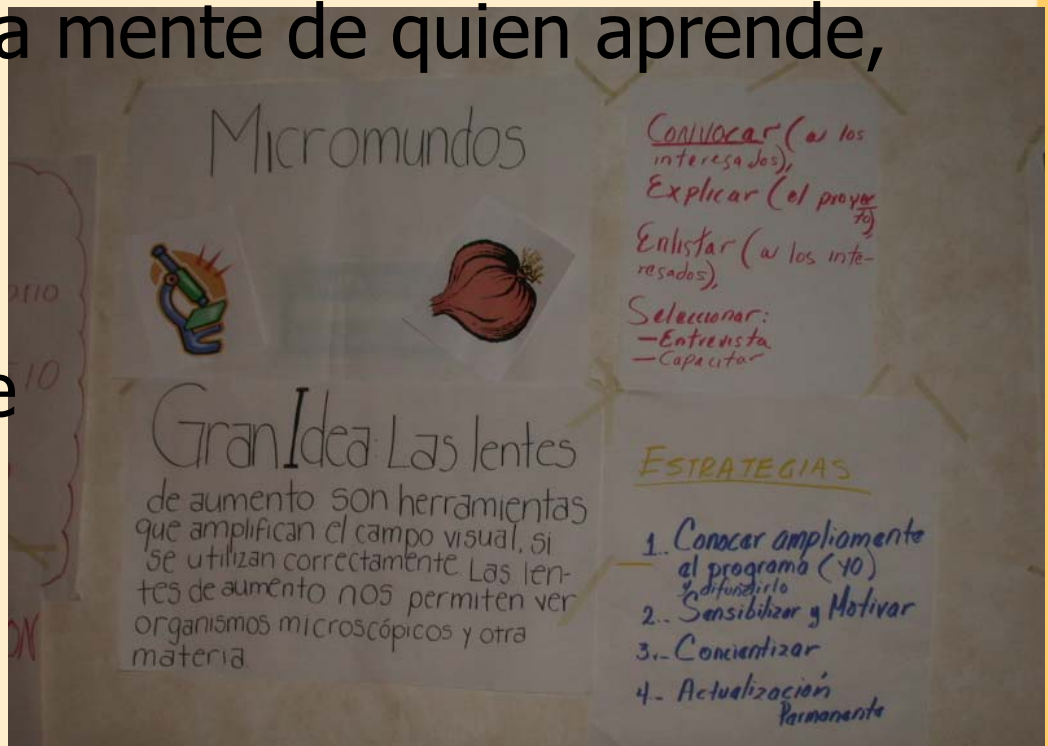 a mente de quien aprende,
e
Micromundos
Gran Idea: Las lentes
de aumento son herramientas
que amplifican el campo visual, si
se utilizan correctamente. Las len-
tes de aumento nos permiten ver
organismos microscópicos y otra
materia.
Convocar (a los
interesados),
Explicar (el proyec
to)
Enlistar (a los inte-
resados),
Seleccionar:
- Entrevista
- Capacitar
ESTRATEGIAS
1.. Conocer ampliamente
el programa (YO)
y difundirlo
2.. Sensibilizar y Motivar
3.- Concientizar
4.- Actualización
Permanente